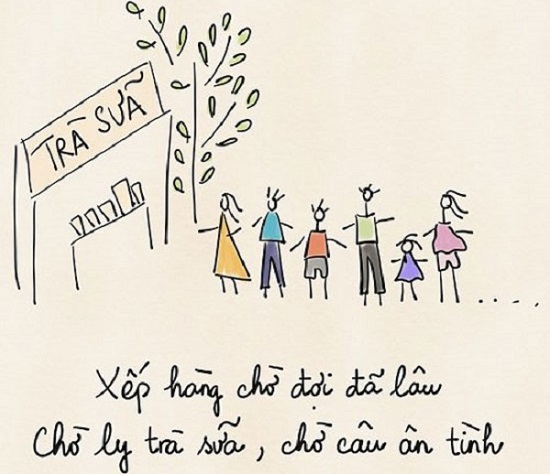 TRÀ SỮA
Xếp hàng chờ đợi đã lâu
Chờ ly trà sữa, chờ câu ân tình